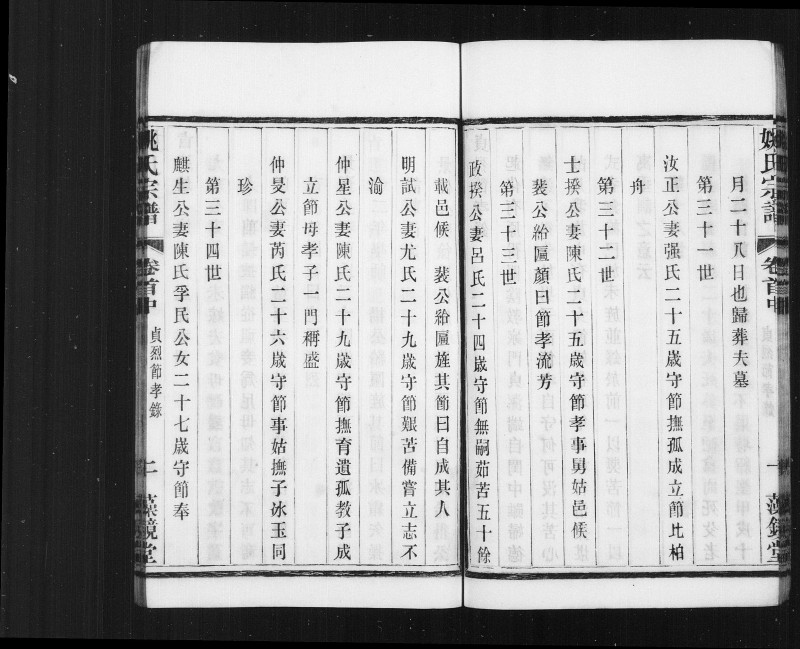 姚氏宗譜
卷首中
一
藻鏡堂
月二十八日也歸葬夫墓
第三十一世
汝正公妻强氏二十五歲守節撫孤成立節比柏
舟
第三十二世
士揆公妻陳氏二十五歲守節孝事舅姑邑侯
裴公給匾顏曰節孝流芳
第三十三世
政揆公妻呂氏二十四歲守節無嗣茹苦五十餘
載邑候 裴公給匾旌其節曰自成其人
明試公妻尤氏二十九歲守節艱苦備嘗立志不
渝
仲星公妻陳氏二十九歲守節撫育遺孤教子成
立節母孝子一門稱盛
仲旻公妻芮氏二十六歲守節事姑撫子冰玉同
珍
第三十四世
麒生公妻陳氏孚民公女二十七歲守節奉
姚氏宗譜
卷首中
貞烈節孝錄
二
藻鏡堂